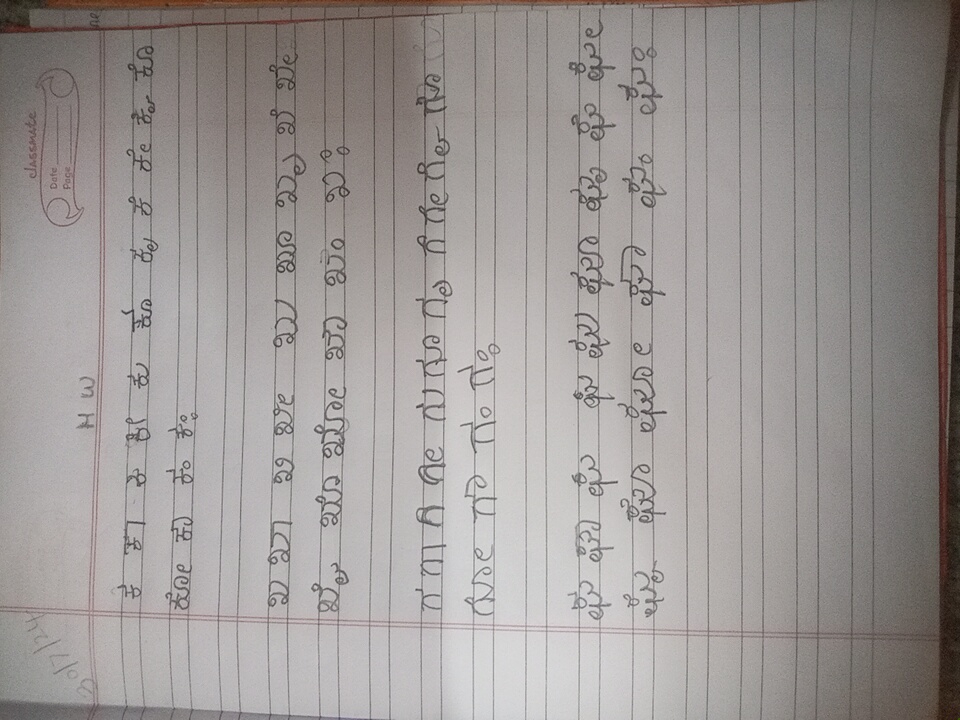 classmate
Date
Page
20/7/24
H W
ಕ ಕಾ ಕಿ ಕೀ ಕು ಕೂ ಕೃ ಕೆ ಕೇ ಕೈ ಕೊ
ಕೋ ಕೌ ಕಂ ಕಃ
ಖ ಖಾ ಖಿ ಖೀ ಖು ಖೂ ಖೃ ಖೆ ಖೇ
ಖೈ ಖೊ ಖೋ ಖೌ ಖಂ ಖಃ
ಗ ಗಾ ಗಿ ಗೀ ಗು ಗೂ ಗೃ ಗೆ ಗೇ ಗೈ ಗೊ
ಗೋ ಗೌ ಗಂ ಗಃ
ಘ ಘಾ ಘಿ ಘೀ ಘು ಘೂ ಘೃ ಘೆ ಘೇ
ಘೈ ಘೊ ಘೋ ಘೌ ಘಂ ಘಃ